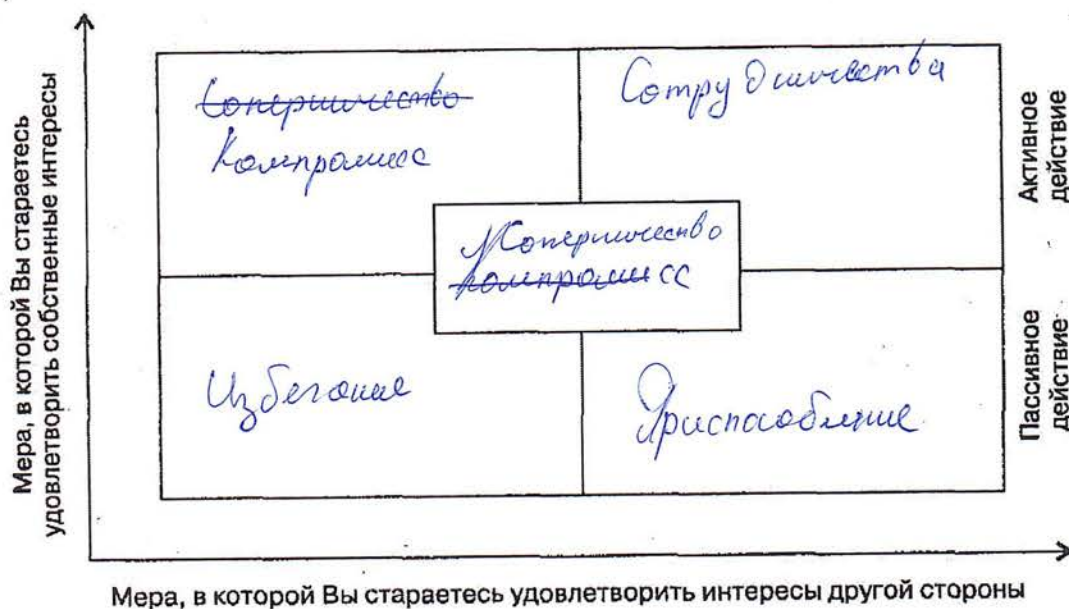 Мера, в которой Вы стараетесь
удовлетворить собственные интересы
Соперничество
Компромисс
Сотрудничества
Соперничество
компромисс
Избегание
Приспособление
Активное
действие
Пассивное
действие
Мера, в которой Вы стараетесь удовлетворить интересы другой стороны